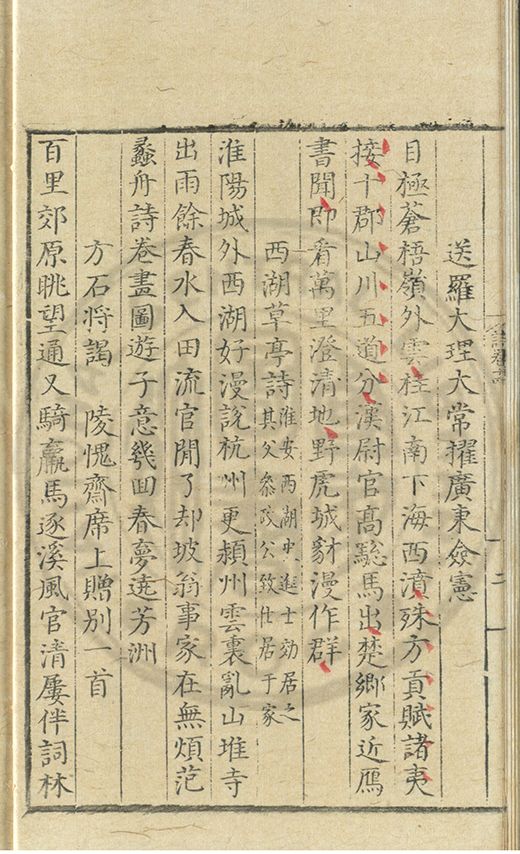 送羅大理大常擢廣東僉憲
目極蒼梧嶺外雲桂江南下海西濆殊方貢賦諸夷
接十郡山川五道分漢尉官高驄馬出楚鄉家近鴈
書聞即看萬里澄清地野虎城豺漫作群
西湖草亭詩淮安西湖中進士効居之其父叅政公致仕居于家
淮陽城外西湖好漫說杭州更潁州雲裏亂山堆寺
出雨餘春水入田流官閒了却坡翁事家在無煩范
蠡舟詩卷畫圖遊子意幾回春夢遶芳洲
方石將謁 陵愧齋席上贈別一首
百里郊原眺望通又騎羸馬逐溪風官清屢伴詞林